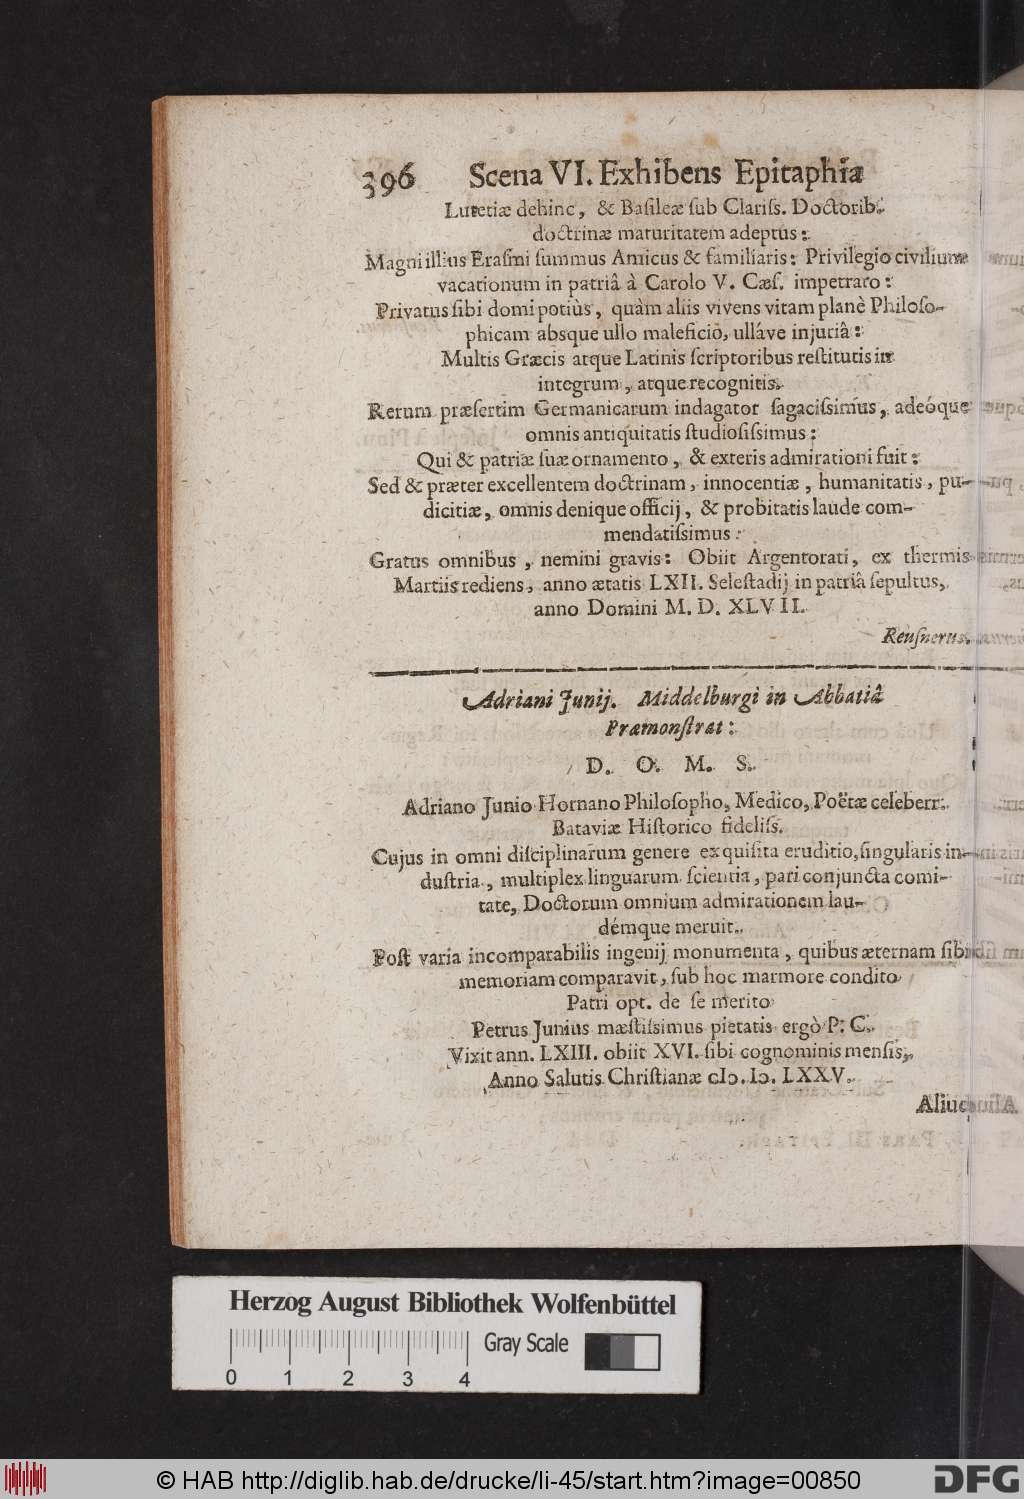 396 Scena VI. Exhibens Epitaphia
Lutetiæ dehinc, & Basileæ ſub Clariſs. Doctorib.
doctrinæ maturitatem adeptus:
Magni illius Eraſmi ſummus Amicus & familiaris: Privilegio civilium
vacationum in patriâ à Carolo V. Cæſ. impetrato:
Privatus ſibi domi potiùs, quàm aliis vivens vitam planè Philoſo-
phicam absque ullo maleficio, ulláve injuriâ:
Multis Græcis atque Latinis ſcriptoribus reſtitutis in
integrum, atque recognitis.
Rerum præſertim Germanicarum indagator ſagaciſsimus, adeóque
omnis antiquitatis ſtudioſiſsimus:
Qui & patriæ ſuæ ornamento, & exteris admirationi fuit:
Sed & præter excellentem doctrinam, innocentiæ, humanitatis, pu-
dicitiæ, omnis denique officij, & probitatis laude com-
mendatiſsimus:
Gratus omnibus, nemini gravis: Obiit Argentorati, ex thermis
Martiis rediens, anno ætatis LXII. Seleſtadij in patriâ ſepultus,
anno Domini M. D. XLVII.
Reuſnerus.
Adriani Junij. Middelburgi in Abbatiâ
Præmonſtrat:
D. O. M. S.
Adriano Junio Hornano Philoſopho, Medico, Poëtæ celeberr.
Bataviæ Hiſtorico fideliſs.
Cujus in omni diſciplinarum genere exquiſita eruditio, ſingularis in-
duſtria, multiplex linguarum ſcientia, pari conjuncta comi-
tate, Doctorum omnium admirationem lau-
démque meruit.
Poſt varia incomparabilis ingenij monumenta, quibus æternam ſibi
memoriam comparavit, ſub hoc marmore condito
Patri opt. de ſe merito
Petrus Junius mæſtiſsimus pietatis ergò P. C.
Vixit ann. LXIII. obiit XVI. ſibi cognominis menſis,
Anno Salutis Chriſtianæ cIɔ. Iɔ. LXXV.
Aliud
Herzog August Bibliothek Wolfenbüttel
Gray Scale
0 1 2 3 4
© HAB http://diglib.hab.de/drucke/li-45/start.htm?image=00850
DFG